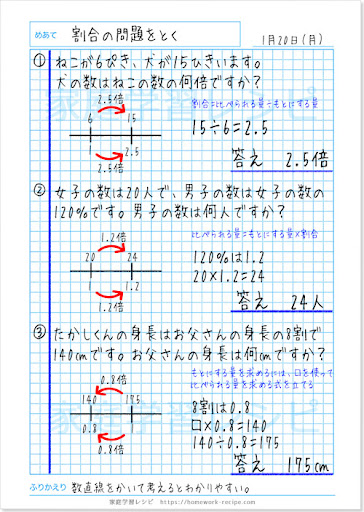 めあて 割合の問題をとく 1月20日(月)
① ねこが6ぴき、犬が15ひきいます。
犬の数はねこの数の何倍ですか?
割合=比べられる量÷もとにする量
2.5倍
6 15
1 2.5
2.5倍
15÷6=2.5
答え 2.5倍
② 女子の数は20人で、男子の数は女子の数の
120%です。男子の数は何人ですか?
比べられる量=もとにする量×割合
1.2倍
20 24
1 1.2
1.2倍
120%は1.2
20×1.2=24
答え 24人
③ たかしくんの身長はお父さんの身長の8割で
140cmです。お父さんの身長は何cmですか?
もとにする量を求めるには、口を使って
比べられる量を求める式を立てる
0.8倍
140 175
0.8 1
0.8倍
8割は0.8
口×0.8=140
140÷0.8=175
答え 175cm
ふりかえり 数直線をかいて考えるとわかりやすい。
家庭学習レシピ https://homework-recipe.com/